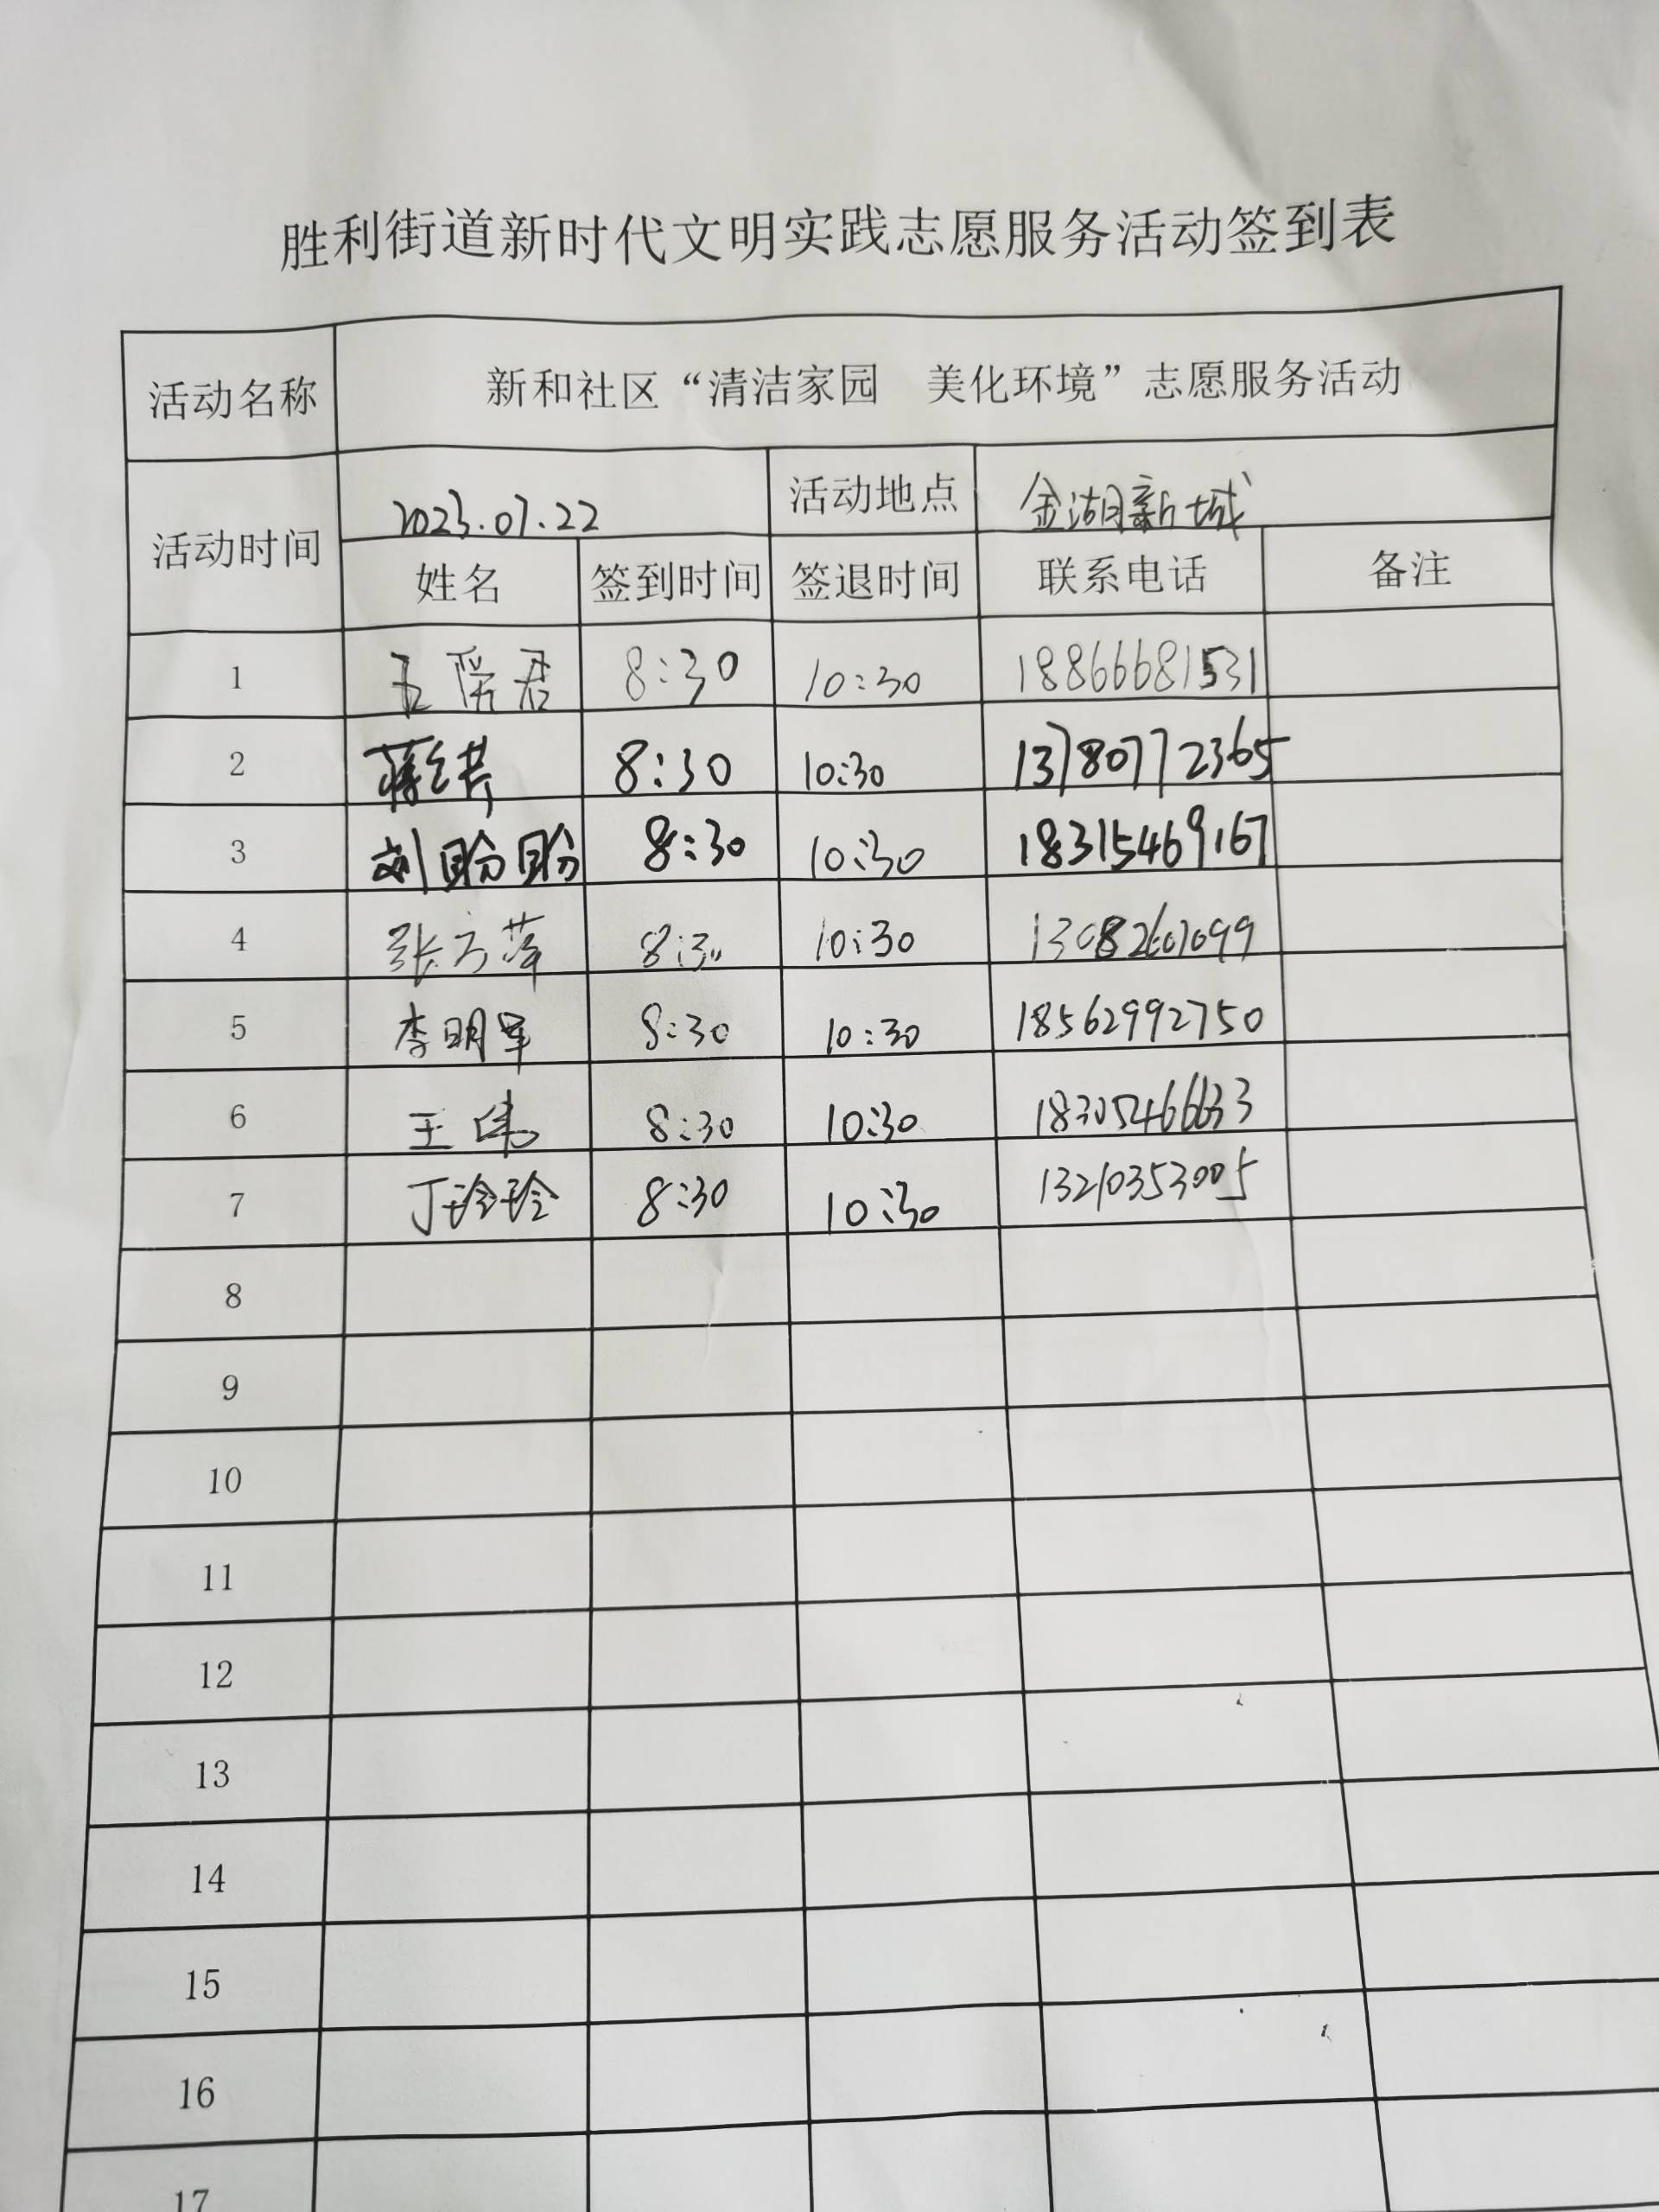 胜利街道新时代文明实践志愿服务活动签到表
活动名称 新和社区“清洁家园 美化环境”志愿服务活动
活动时间 2023.07.22 活动地点 金湖新城
姓名 签到时间 签退时间 联系电话 备注
1 8:30 10:30 18866681531
2 8:30 10:30 13780772365
3 刘盼盼 8:30 10:30 18315469167
4 8:30 10:30
5 李明军 8:30 10:30 18562992750
6 王伟 8:30 10:30 18305466633
7 丁玲玲 8:30 10:30 13210353005
8
9
10
11
12
13
14
15
16
17